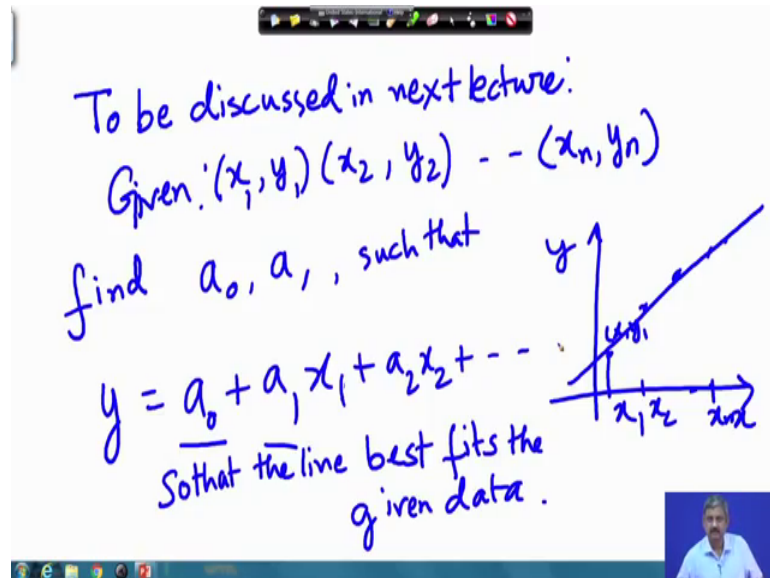 To be discussed in next lecture:
Given: (x₁, y₁) (x₂, y₂) - - (xₙ, yₙ)
find a₀, a₁, such that
y = a₀ + a₁x₁ + a₂x₂ + - - -
So that the line best fits the
given data.
y
x₁ x₂ xₙ x